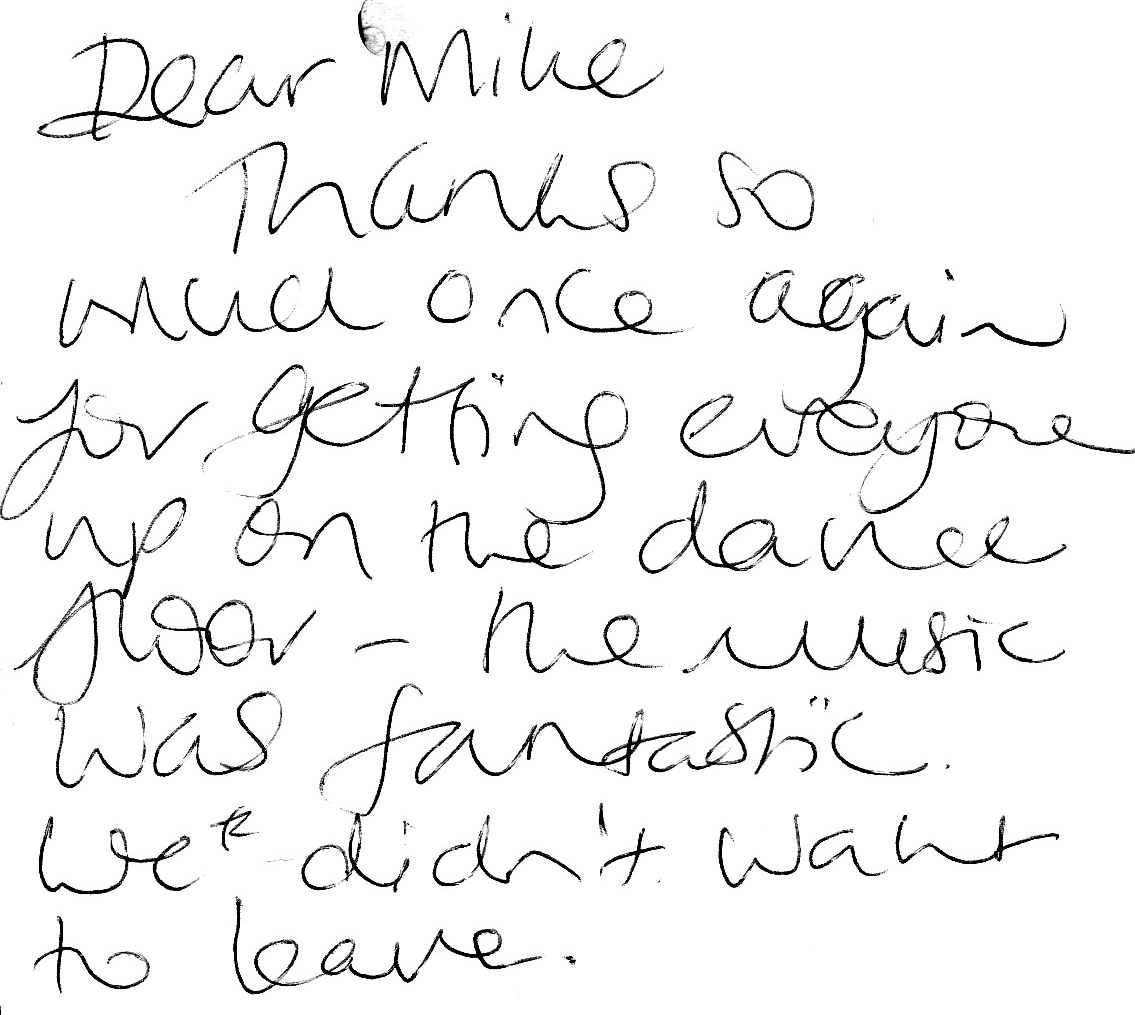 Dear Mike
Thanks so
much once again
for getting everyone
up on the dance
floor - the music
was fantastic.
We* didn't want
to leave.